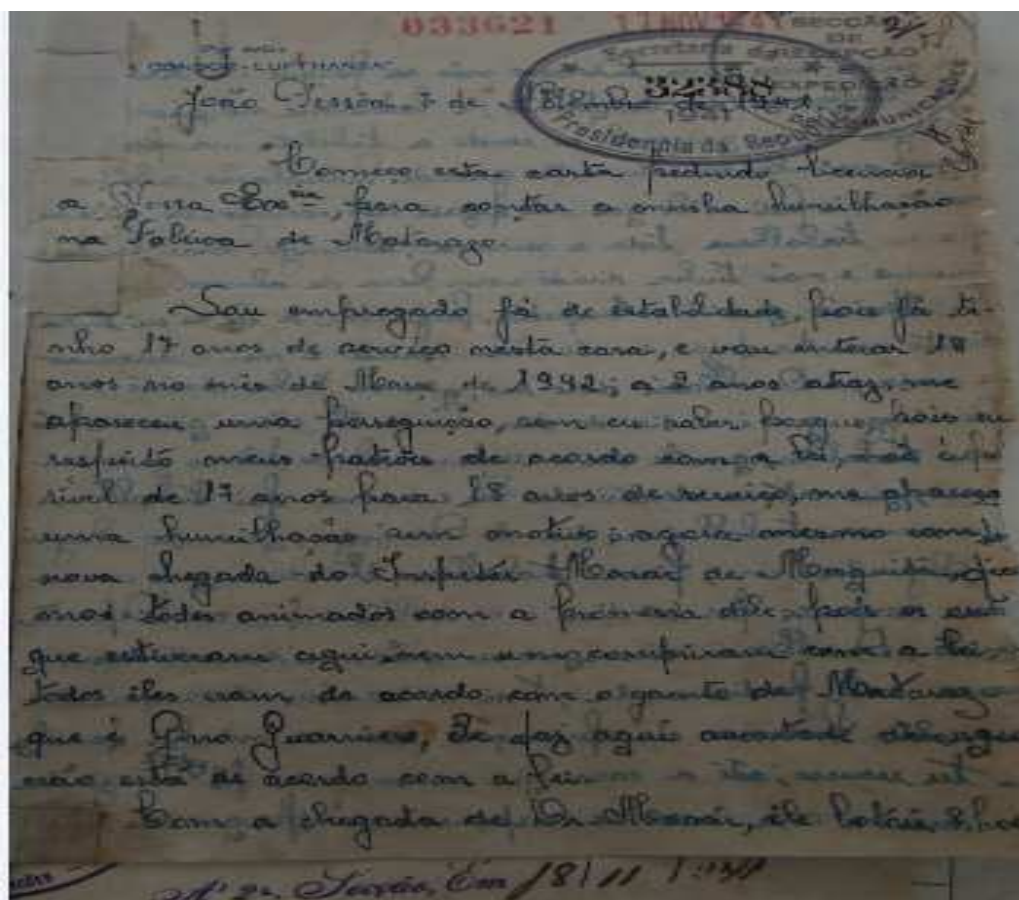 033621 17 NOV 1941 SECCÃO
DE
CONDOR-LUFTHANSA Secretaria da
João Pessôa, 7 de Novembro de 1941.
1941
Presidencia da Republica
Começo esta carta pedindo licença
a Vossa Excia para contar a minha humilhação
na Fabrica de Matarazo
Sou empregado já de estabilidade, pois já te-
nho 17 anos de serviço nesta casa, e vou enterar 18
anos no mês de Março de 1942; a 2 anos atraz, me
apareceu uma perseguição, sem eu saber porque, pois eu
respeito meus patrões de acordo com a lei,
sivel de 17 anos para 18 anos de serviço, me apareça
uma humilhação sem motivo; agora mesmo com a
nova chegada do Inspetor Moacir de Mesquita,
mos todos animados com a promessa dele, pois os
que estiveram aqui, nem um cumpriram com a lei,
todos eles eram de acordo com o gerente de Matarazo
que é Gino Guarniere, ele faz aqui a vontade dele, que
não está de acordo com a lei
Com a chegada do Dr. Moacir, ele botou 8 horas
Nº 2a. Secção, Em 18/11